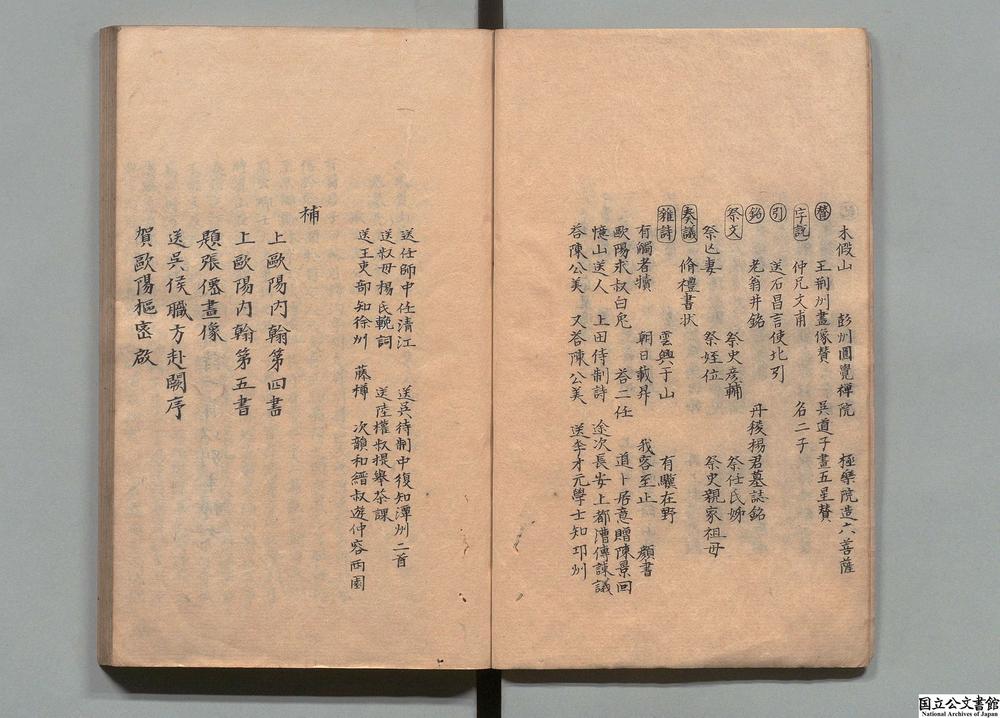 木假山　彭州圓覺禪院　極樂院造六菩薩
賛　王荆州畫像賛　吳道子畫五星賛
字說　仲兄文甫　名二子
引　送石昌言使北引
銘　老翁井銘　丹稜楊君墓誌銘
祭文　祭史彥輔　祭任氏姊
祭亡妻　祭姪位　祭史親家祖母
奏議　脩禮書状
雜詩　雲興于山　有驥在野
有觸者犢　朝日載昇　我客至止　顏書
歐陽永叔白兎　荅二任　道卜居意贈陳景回
憶山送人　上田待制詩　途次長安上都漕傅諫議
荅陳公美　又荅陳公美　送李才元學士知邛州
送任師中任清江　送吳待制中復知潭州二首
送叔母楊氏輓詞　送陸權叔提舉茶課
送王吏部知徐州　藤樽　次韻和縉叔遊仲容兩園
補
上歐陽内翰第四書
上歐陽内翰第五書
題張僊畫像
送吳侯職方赴闕序
賀歐陽樞密啟
国立公文書館
National Archives of Japan